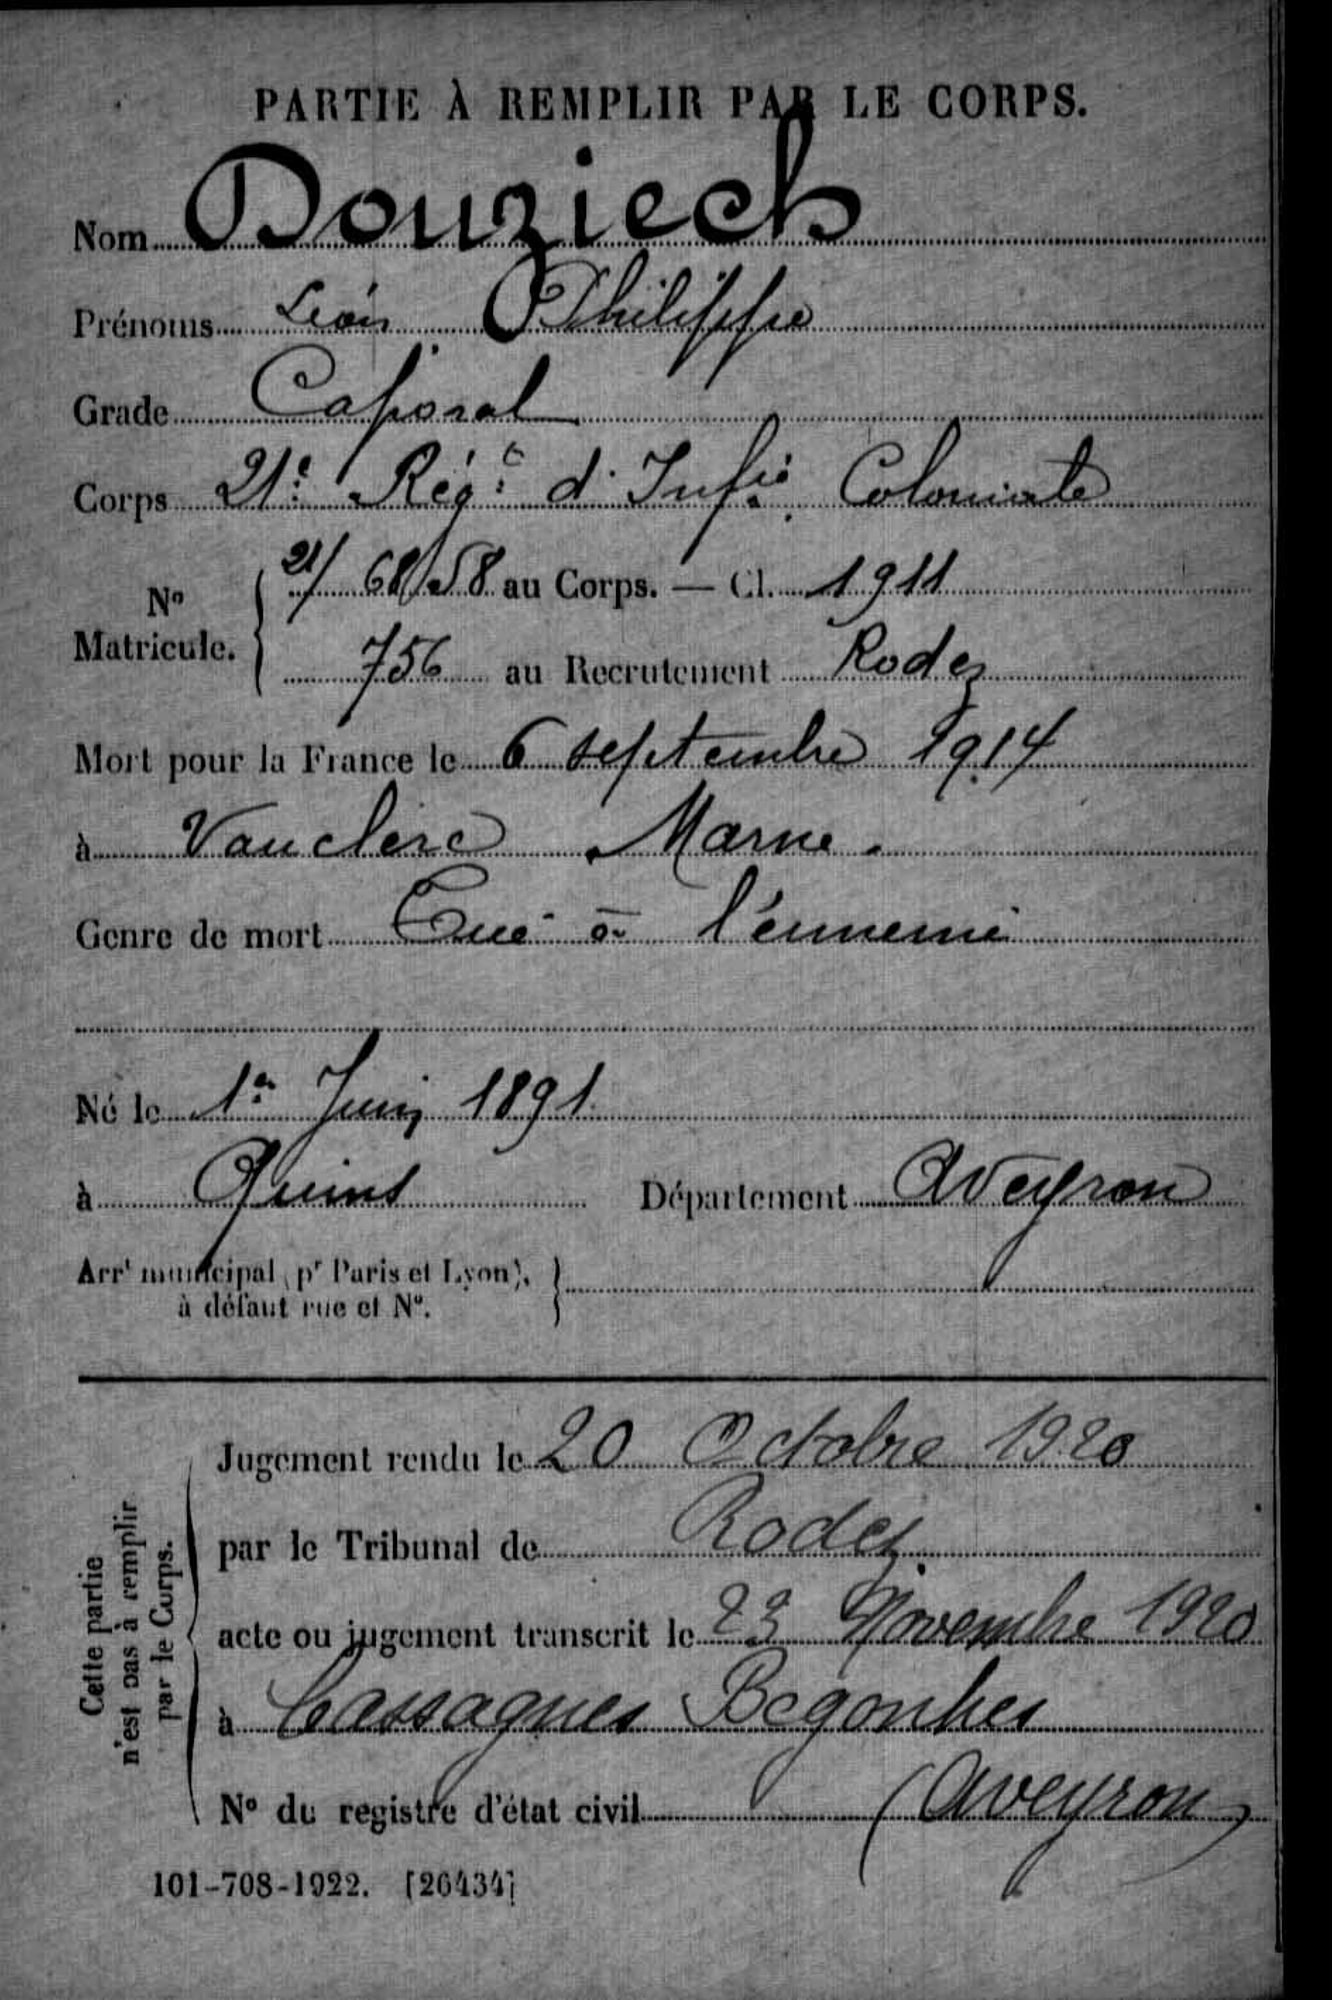 PARTIE À REMPLIR PAR LE CORPS.
Nom Douziech
Prénoms Léon Philippe
Grade Caporal
Corps 21e Régt d'Infie Coloniale
No Matricule. { 21/ 6858 au Corps. — Cl. 1911
756 au Recrutement Rodez
Mort pour la France le 6 septembre 1914
à Vauclerc Marne.
Genre de mort Tué à l'ennemi
Né le 1er Juin 1891
à Quins Département Aveyron
Arrt municipal (pr Paris et Lyon), }
à défaut rue et No.
Jugement rendu le 20 Octobre 1920
par le Tribunal de Rodez
acte ou jugement transcrit le 23 Novembre 1920
à Cassagnes Begonhes
(Aveyron)
No du registre d'état civil
Cette partie
n'est pas à remplir
par le Corps.
101-708-1922. [26434]